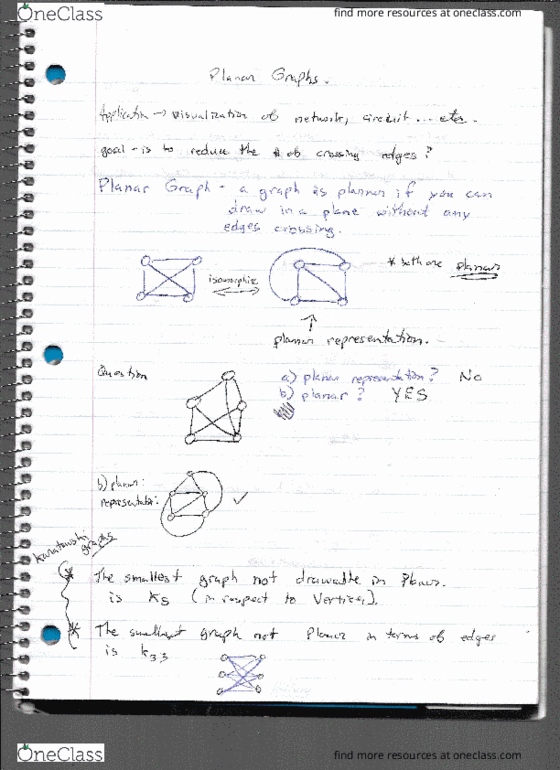 OneClass
find more resources at oneclass.com
Planar Graphs.
Application → visualization of network, circuit ... etc.
goal - is to reduce the # of crossing edges?
Planar Graph - a graph is planar if you can
draw in a plane without any
edges crossing.
isomorphic
* both are planar
planar representation.
Question
a) planar representation? No
b) planar? YES
b) planar:
representation:
graphs
* The smallest graph not drawable in Planar.
is K5 (in respect to Vertices).
* The smallest graph not Planar in terms of edges
is k3,3
OneClass
find more resources at oneclass.com